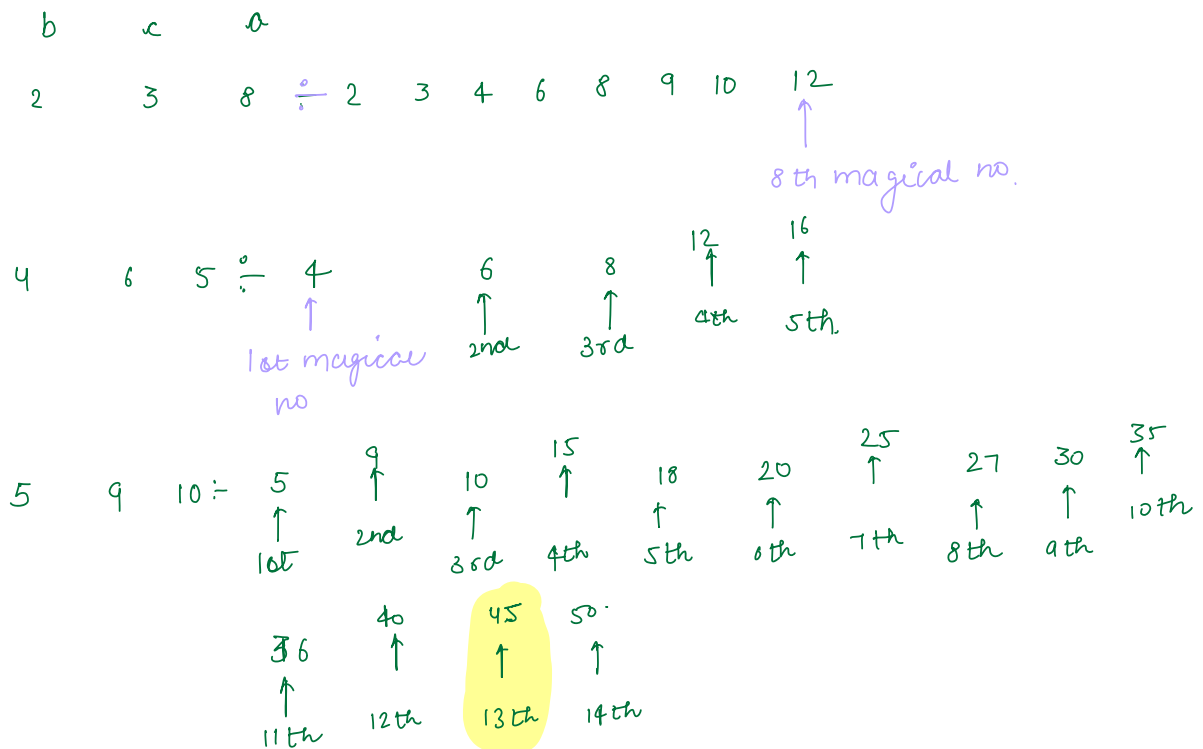 b c a
2 3 8 ÷ 2 3 4 6 8 9 10 12
8th magical no.
4 6 5 ÷ 4 6 8 12 16
1st magical no 2nd 3rd 4th 5th.
5 9 10 :- 5 9 10 15 18 20 25 27 30 35
1st 2nd 3rd 4th 5th 6th 7th 8th 9th 10th
36 40 45 50.
11th 12th 13th 14th